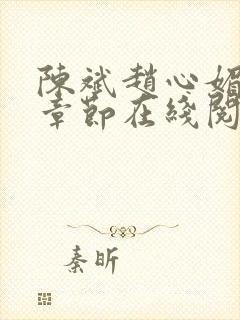 陳斌趙心媚
章節在綫閱
秦昕